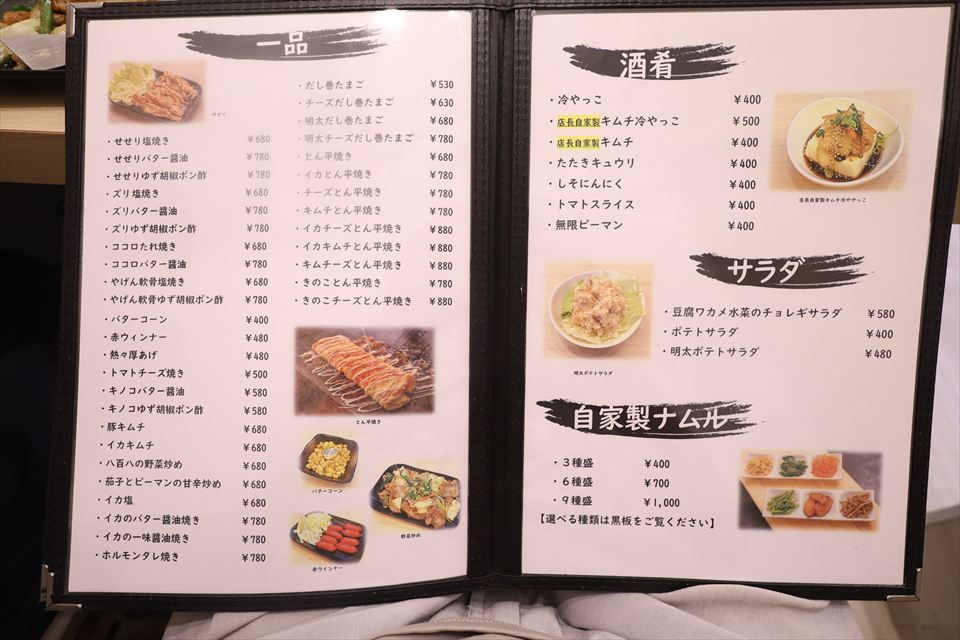 一品
せせり
・せせり塩焼き ¥680
・せせりバター醤油 ¥780
・せせりゆず胡椒ポン酢 ¥780
・ズリ塩焼き ¥680
・ズリバター醤油 ¥780
・ズリゆず胡椒ポン酢 ¥780
・ココロたれ焼き ¥680
・ココロバター醤油 ¥780
・やげん軟骨塩焼き ¥680
・やげん軟骨ゆず胡椒ポン酢 ¥780
・バターコーン ¥400
・赤ウィンナー ¥480
・熱々厚あげ ¥480
・トマトチーズ焼き ¥500
・キノコバター醤油 ¥580
・キノコゆず胡椒ポン酢 ¥580
・豚キムチ ¥680
・イカキムチ ¥680
・八百八の野菜炒め ¥680
・茄子とピーマンの甘辛炒め ¥680
・イカ塩 ¥680
・イカのバター醤油焼き ¥780
・イカの一味醤油焼き ¥780
・ホルモンタレ焼き ¥780
・だし巻たまご ¥530
・チーズだし巻たまご ¥630
・明太だし巻たまご ¥680
・明太チーズだし巻たまご ¥780
・とん平焼き ¥680
・イカとん平焼き ¥780
・チーズとん平焼き ¥780
・キムチとん平焼き ¥780
・イカチーズとん平焼き ¥880
・イカキムチとん平焼き ¥880
・キムチチーズとん平焼き ¥880
・きのことん平焼き ¥780
・きのこチーズとん平焼き ¥880
とん平焼き
バターコーン
野菜炒め
赤ウインナー
酒肴
・冷やっこ ¥400
・店長自家製キムチ冷やっこ ¥500
・店長自家製キムチ ¥400
・たたきキュウリ ¥400
・しそにんにく ¥400
・トマトスライス ¥400
・無限ピーマン ¥400
店長自家製キムチ冷ややっこ
サラダ
・豆腐ワカメ水菜のチョレギサラダ ¥580
・ポテトサラダ ¥400
・明太ポテトサラダ ¥480
明太ポテトサラダ
自家製ナムル
・3種盛 ¥400
・6種盛 ¥700
・9種盛 ¥1,000
【選べる種類は黒板をご覧ください】